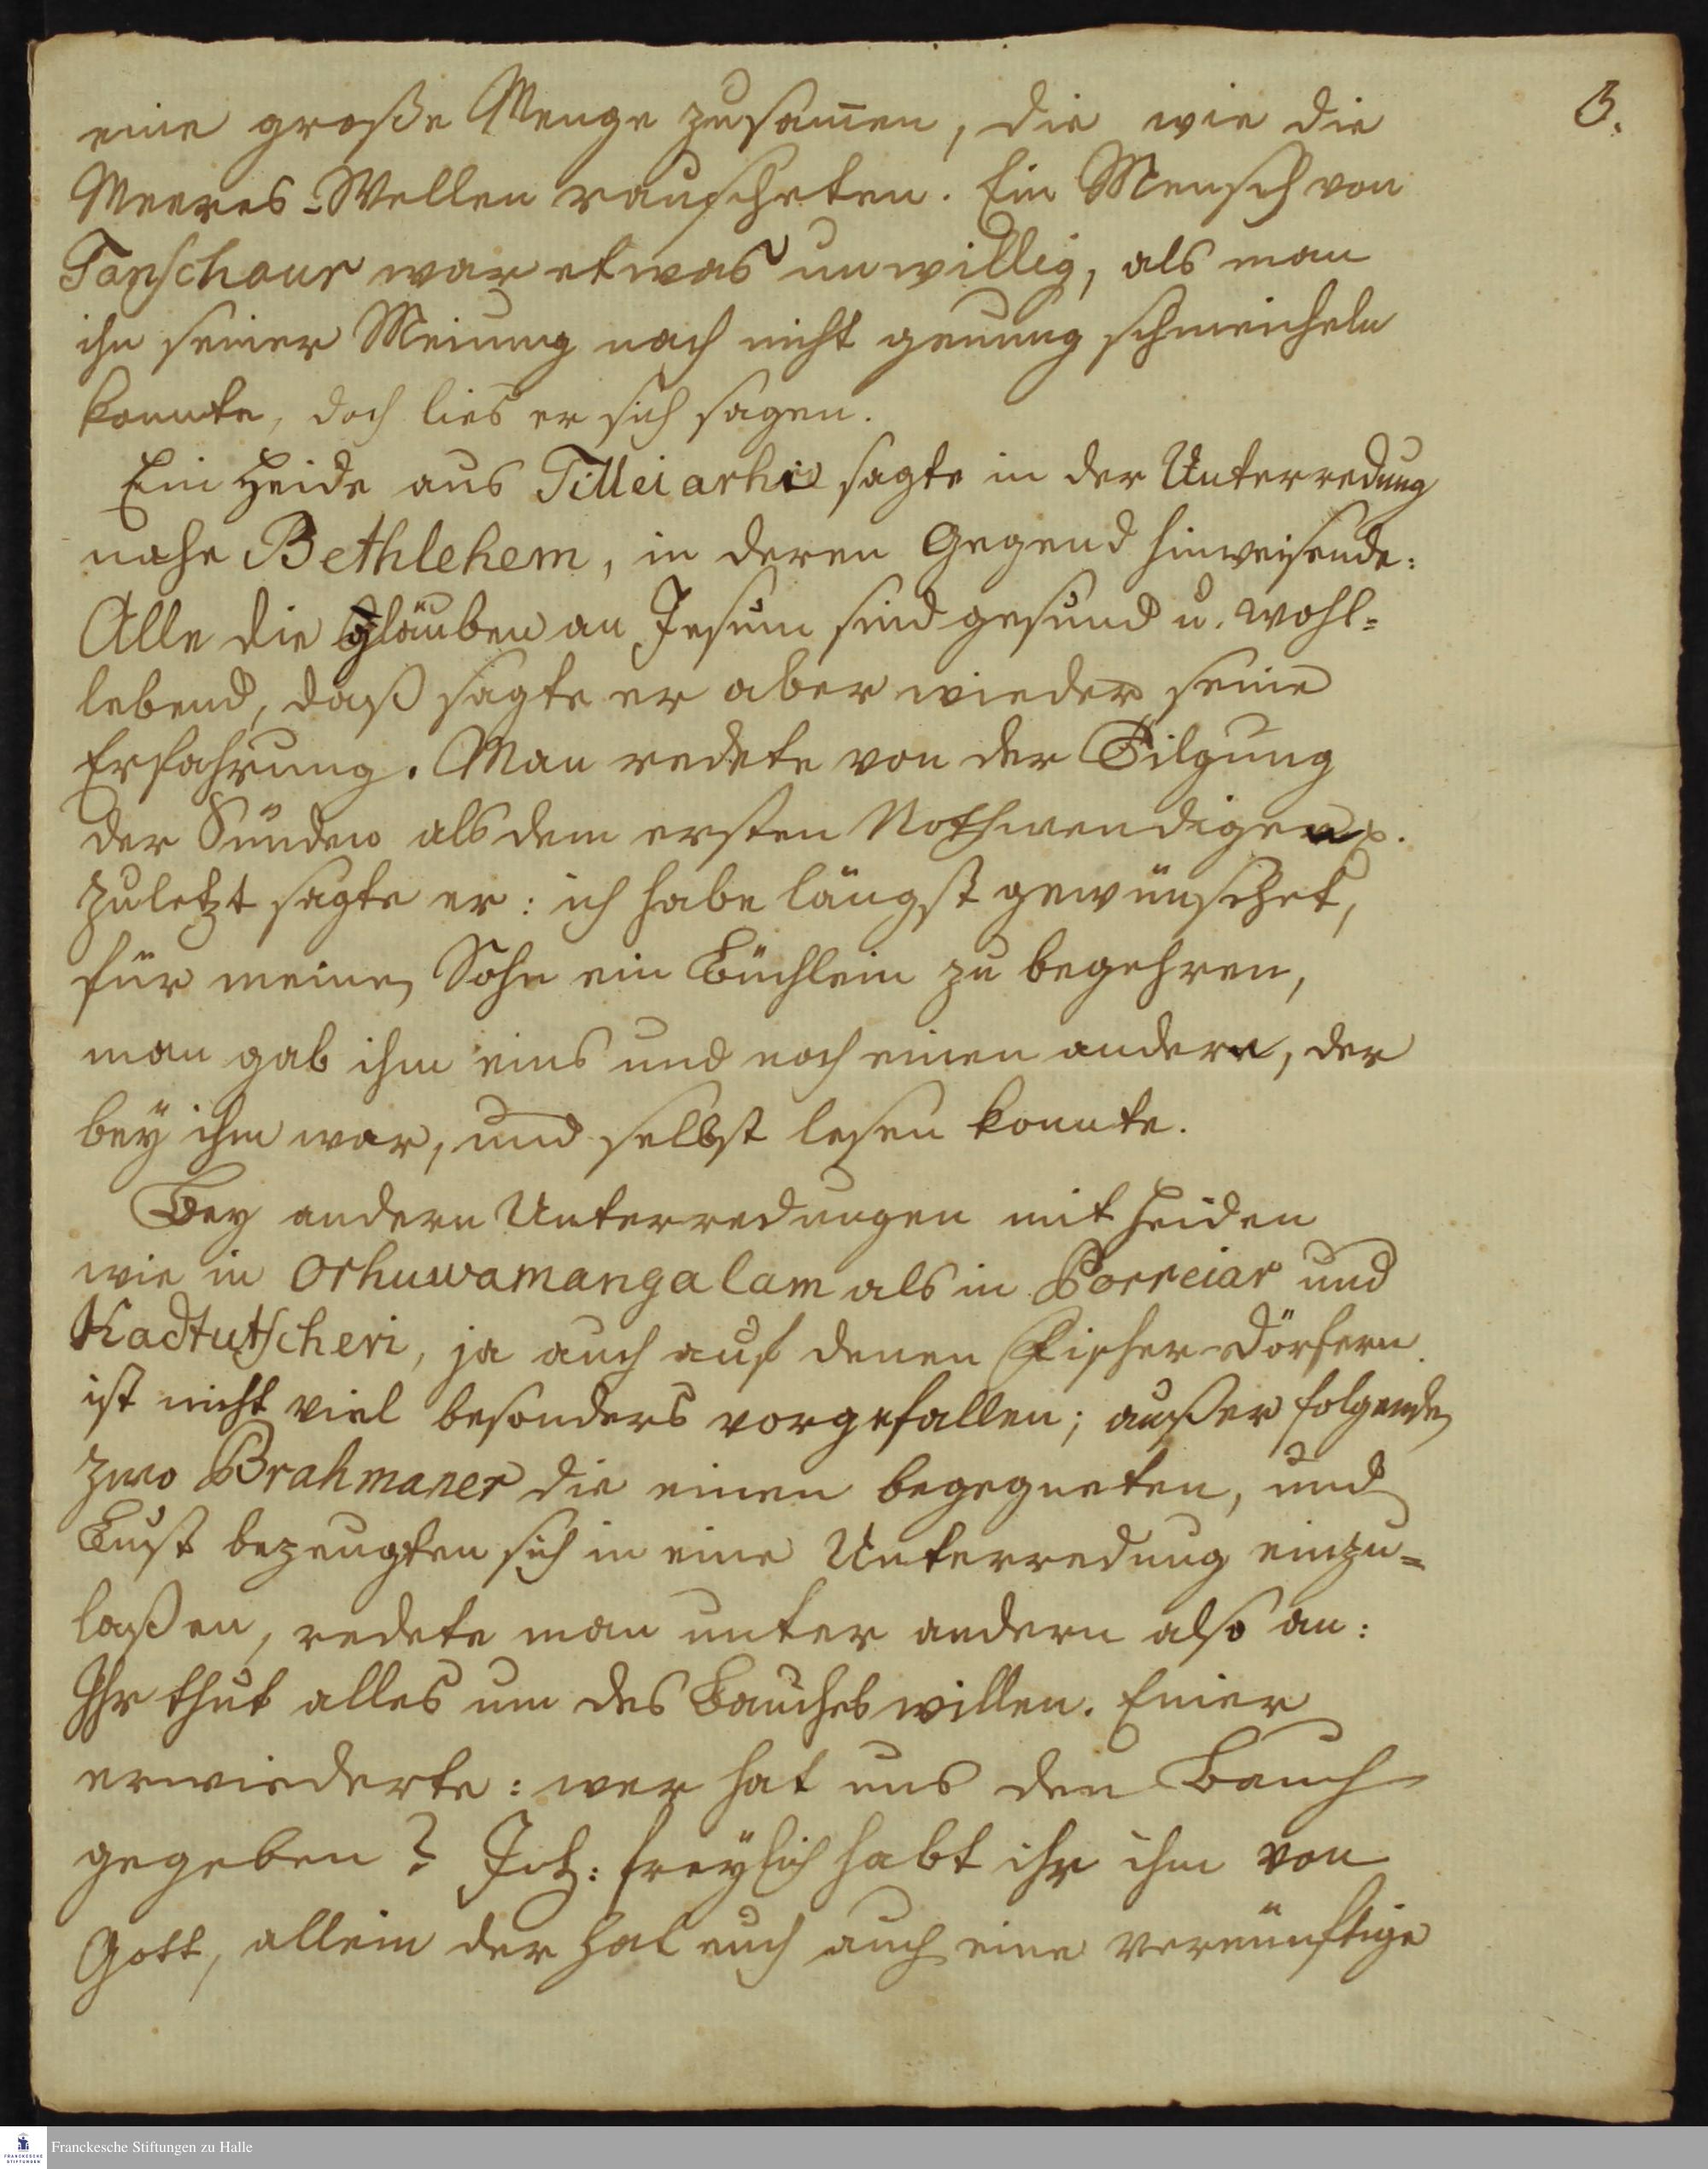 3.
eine große Menge zusam̅en, die wie die
Meeres-Wellen rauscheten. Ein Mensch von
Tanschaur war etwas unwillig, als man
ihn seiner Meinung nach nicht genung schmeicheln
konnte, doch lies er sich sagen.
Ein Heide aus Tilleiarhi sagte in der Unterredung
nahe Bethlehem, in deren Gegend hinweisende:
Alle die gläuben an Jesum sind gesund u. wohl-
lebend, daß sagte er aber wieder seine
Erfahrung. Man redete von der Tilgung
der Sünden als dem ersten Nothwendigen p.
zuletzt sagte er: ich habe längst gewünschet,
für meinen Sohn ein Büchlein zu begehren,
man gab ihm eins und noch einen andern, der
beÿ ihm war, und selbst lesen konnte.
Bey andern Unterredungen mit Heiden
wie in Orhuwamangalam als in Porreiar und
Kadtutscheri, ja auch auf denen Fischer-Dörfern
ist nicht viel besonders vorgefallen; außer folgenden
zwo Brahmaner die einen begegneten, und
Lust bezeugten sich in eine Unterredung einzu-
laßen, redete man unter andern also an:
Ihr thut alles um des Bauches willen. Einer
erwiederte: wer hat uns den Bauch
gegeben? Ich: freÿlich habt ihr ihm von
Gott, allein der hat euch auch eine vernünftige
Franckesche Stiftungen zu Halle
FRANCKESCHE
STIFTUNGEN